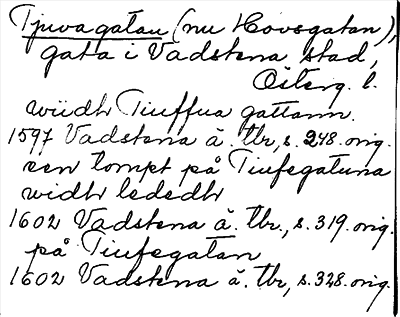 Tjuvagatan (nu Hovsgatan),
gata i Vadstena stad,
Österg. l.
widh Tiuffua gattann.
1597 Vadstena ä. tbr, s. 248. orig.
een tompt på Tiufegatuna
widh lededh
1602 Vadstena ä. tbr., s. 319. orig.
på Tiufegatan
1602 Vadstena ä. tbr, s. 328. orig.